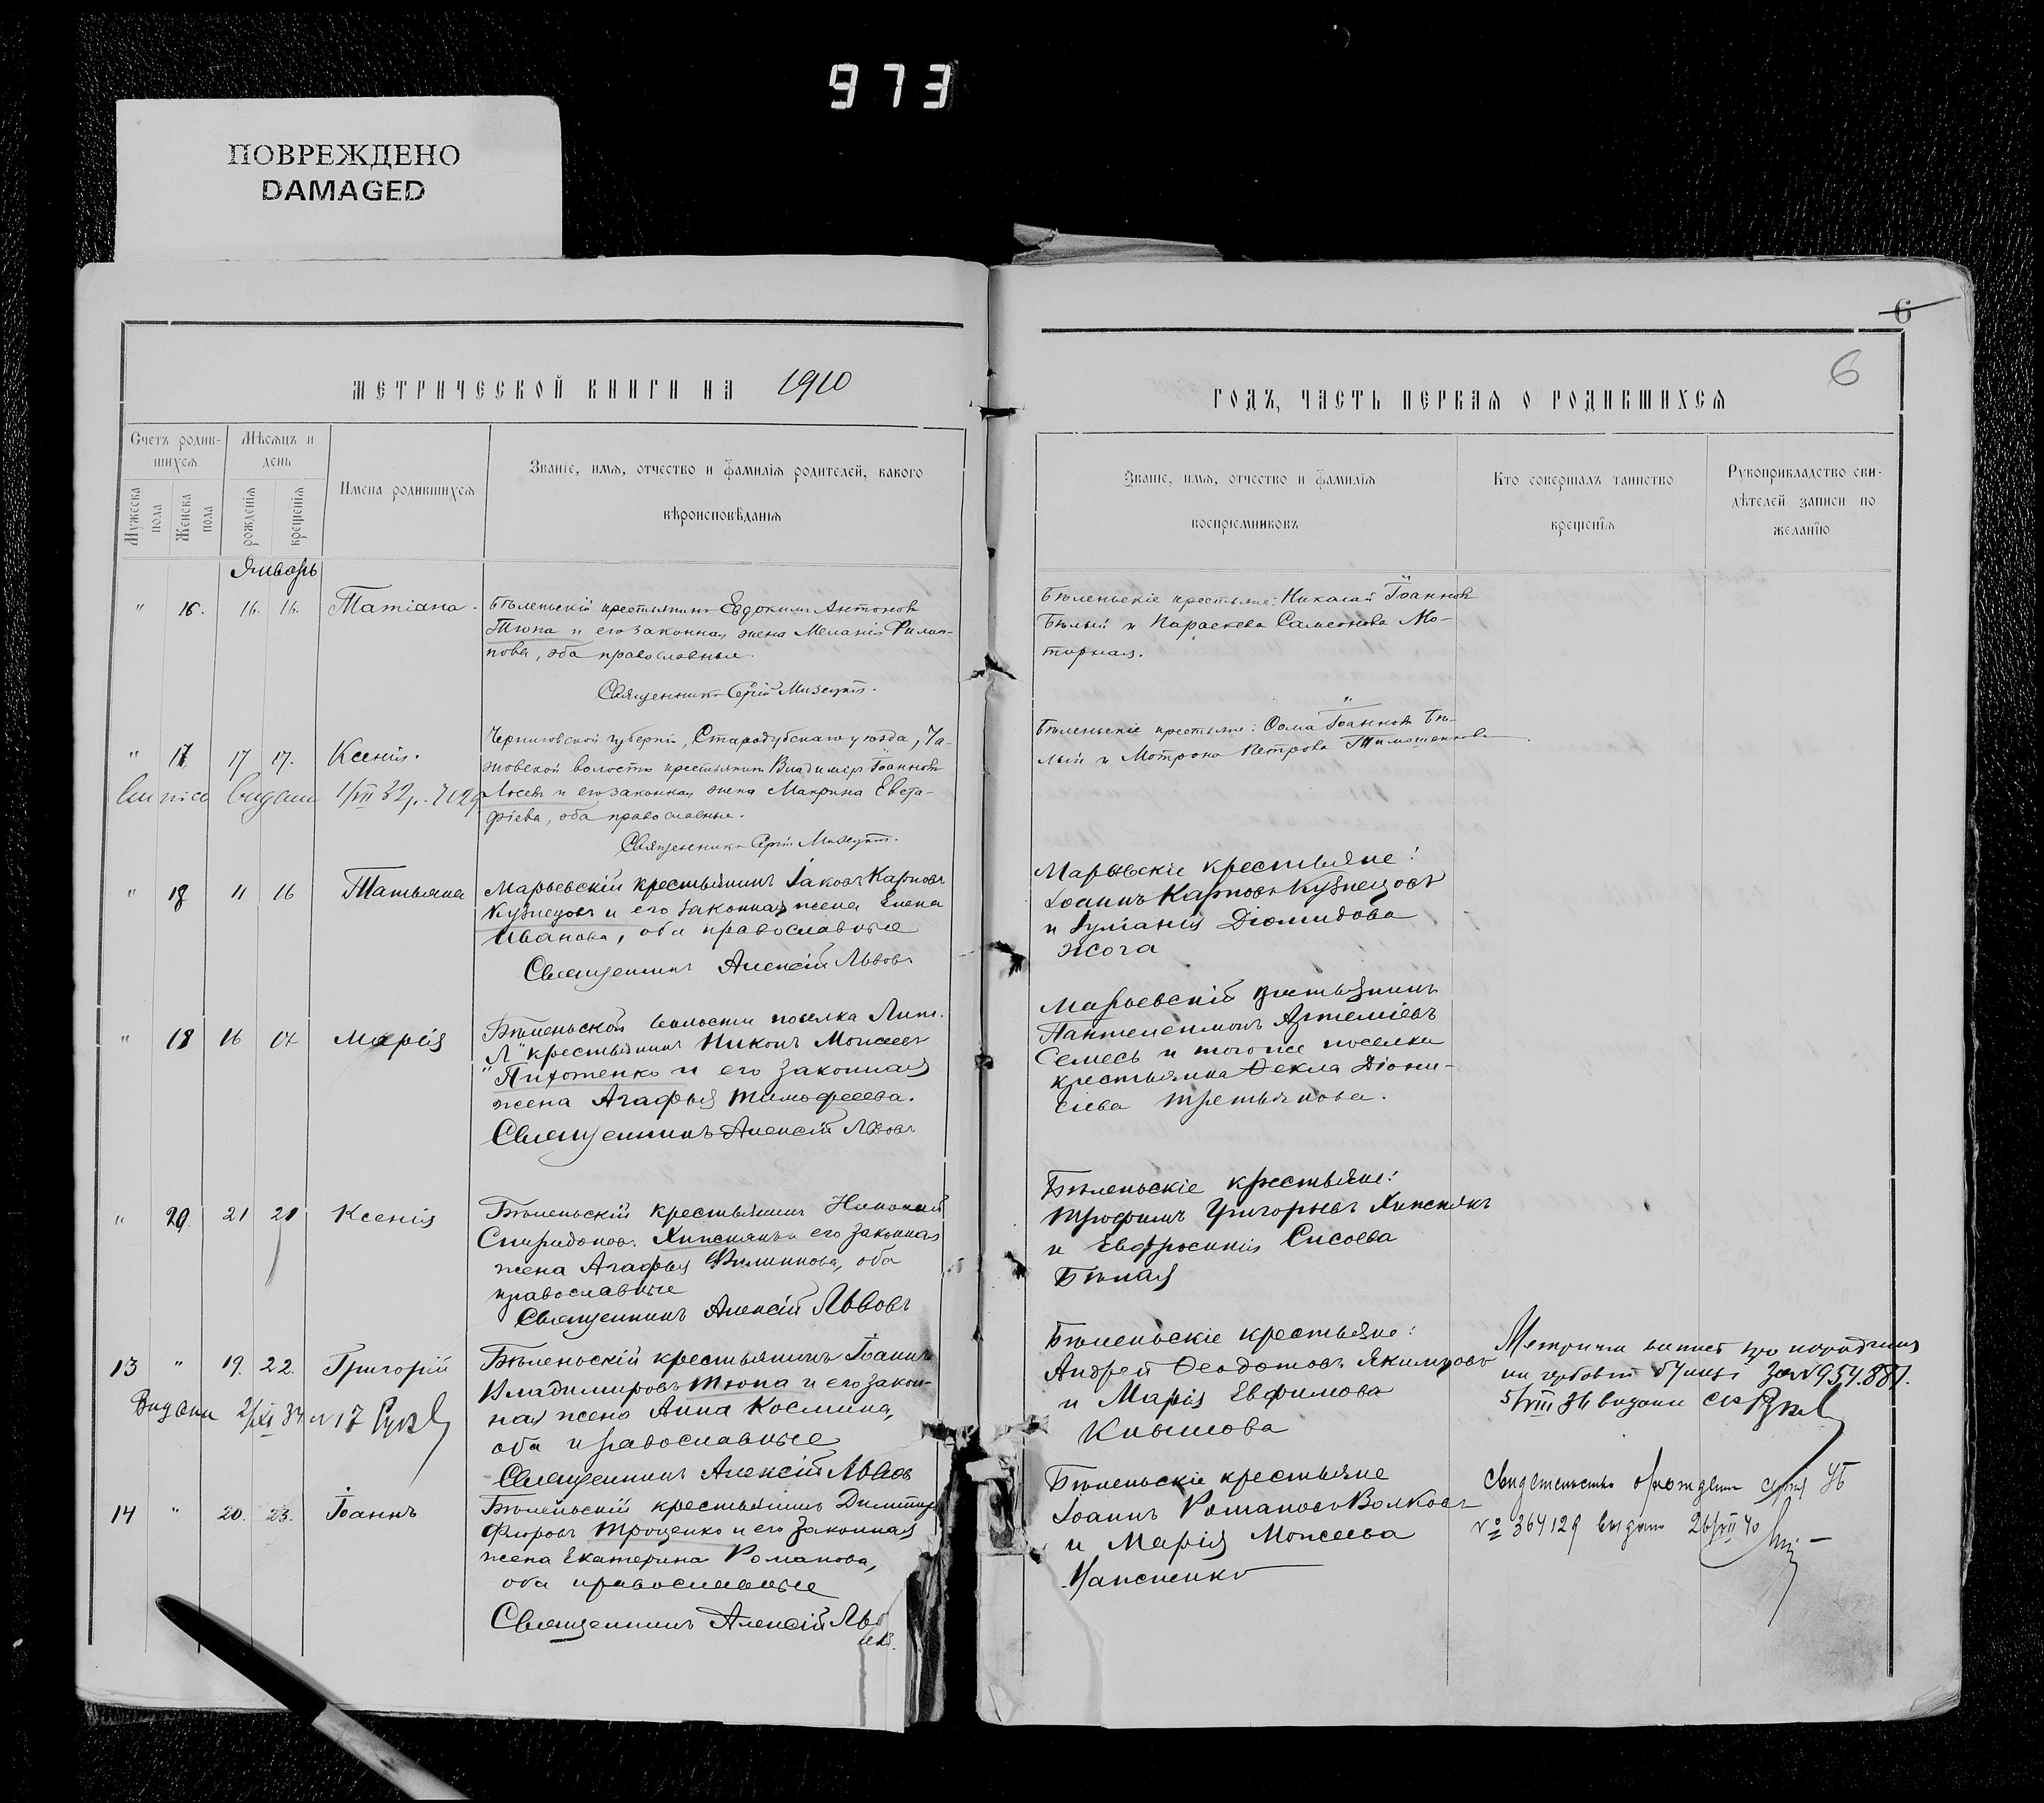 973
ПОВРЕЖДЕНО
DAMAGED
6
6
МЕТРИЧЕСКОЙ КНИГИ НА 1910
ГОДЪ, ЧАСТЬ ПЕРВАЯ О РОДИВШИХСЯ
Счетъ родив-
шихся
Мужеска
пола
Женска
пола
Мѣсяцъ и
день
рожденія
крещенія
Имена родившихся
Званіе, имя, отчество и фамилія родителей, какого
вѣроисповѣданія
Званіе, имя, отчество и фамилія
воспріемниковъ
Кто совершалъ таинство
крещенія
Рукоприкладство сви-
дѣтелей записи по
желанію
Январь
" 16. 16. 16. Татіана.
Бѣленьскій крестьянинъ Евдокимъ Антоновъ
Тюпа и его законная жена Меланія Филип-
пова, оба православные.
Священникъ Сергій
Бѣленьскіе крестьяне: Николай Іоанновъ
Бѣлый и Параскева Самсонова Мо-
торная.
" 17 17 17. Ксенія.
Черниговской губерніи, Стародубскаго уѣзда,
волости крестьянинъ Владиміръ Іоанновъ
Лосевъ и его законная жена Макрина Евста-
фіева, оба православные.
Священникъ Сергій
видана 1/VII 32р.
Бѣленьскіе крестьяне: Ѳома Іоанновъ Бѣ-
лый и Мотрона Петрова
" 18 11 16 Татьяна
Марьевскій крестьянинъ Іаковъ Карповъ
Кузнецовъ и его законная жена Елена
Иванова, оба православные
Священникъ Алексій Львовъ
Марьевскіе крестьяне:
Іоаннъ Карповъ Кузнецовъ
и Іуліанія Діомидова
Жога
" 18 16 17 Марія
Бѣленьской волости поселка Лит.
"Л" крестьянинъ Никонъ Моисеевъ
Пихотенко и его законная
жена Агафья Тимофеева.
Священникъ Алексій Львовъ
Марьевскій крестьянинъ
Пантелеимонъ Артеміевъ
Семесь и того же поселка
крестьянка Ѳекла Діони-
сіева Третьякова.
" 20. 21 21 Ксенія
Бѣленьскій крестьянинъ Николай
Спиридоновъ его законная
жена Агафья Филиппова, оба
православные
Священникъ Алексій Львовъ
Бѣленьскіе крестьяне:
Трофимъ Григорьевъ
и Евфросинія Сисоева
Бѣлая
13 " 19. 22. Григорій
Бѣленьскій крестьянинъ Іоаннъ
Владимировъ Тюпа и его закон-
ная жена Анна Косьмина,
оба православные
Священникъ Алексій Львовъ
Видана 2/XI 34 N 17
Бѣленьскіе крестьяне:
Андрей Ѳеодотовъ Якимцовъ
и Марія Евфимова
Клышова
за N 954.881.
5/VIII 36 видана
14 " 20. 23. Іоаннъ
Бѣленьскій крестьянинъ Димитрій
Флоровъ Троценко и его законная
жена Екатерина Романова,
оба православные
Священникъ Алексій
Бѣленьскіе крестьяне
Іоаннъ Романовъ Волковъ
и Марія Моисеева
Свидетельство о рождении серия УБ
№ 364129 выдано 26/VII 40